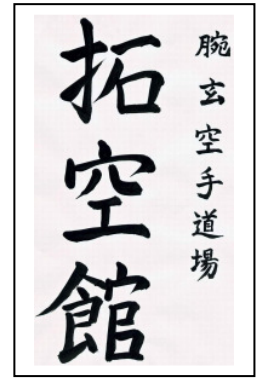 腕玄空手道場
拓空館